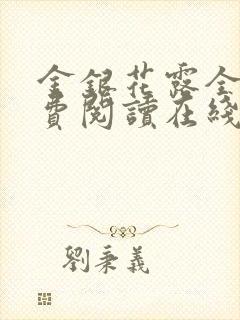 金銀花露全
費閱讀在綫
劉秉義